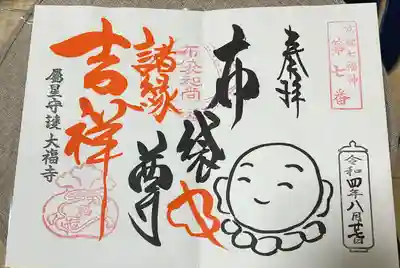 第七番
奉拝
令和四年八月廿七日
布袋尊
布袋和尚
諸縁
吉祥
屬星守護大福寺